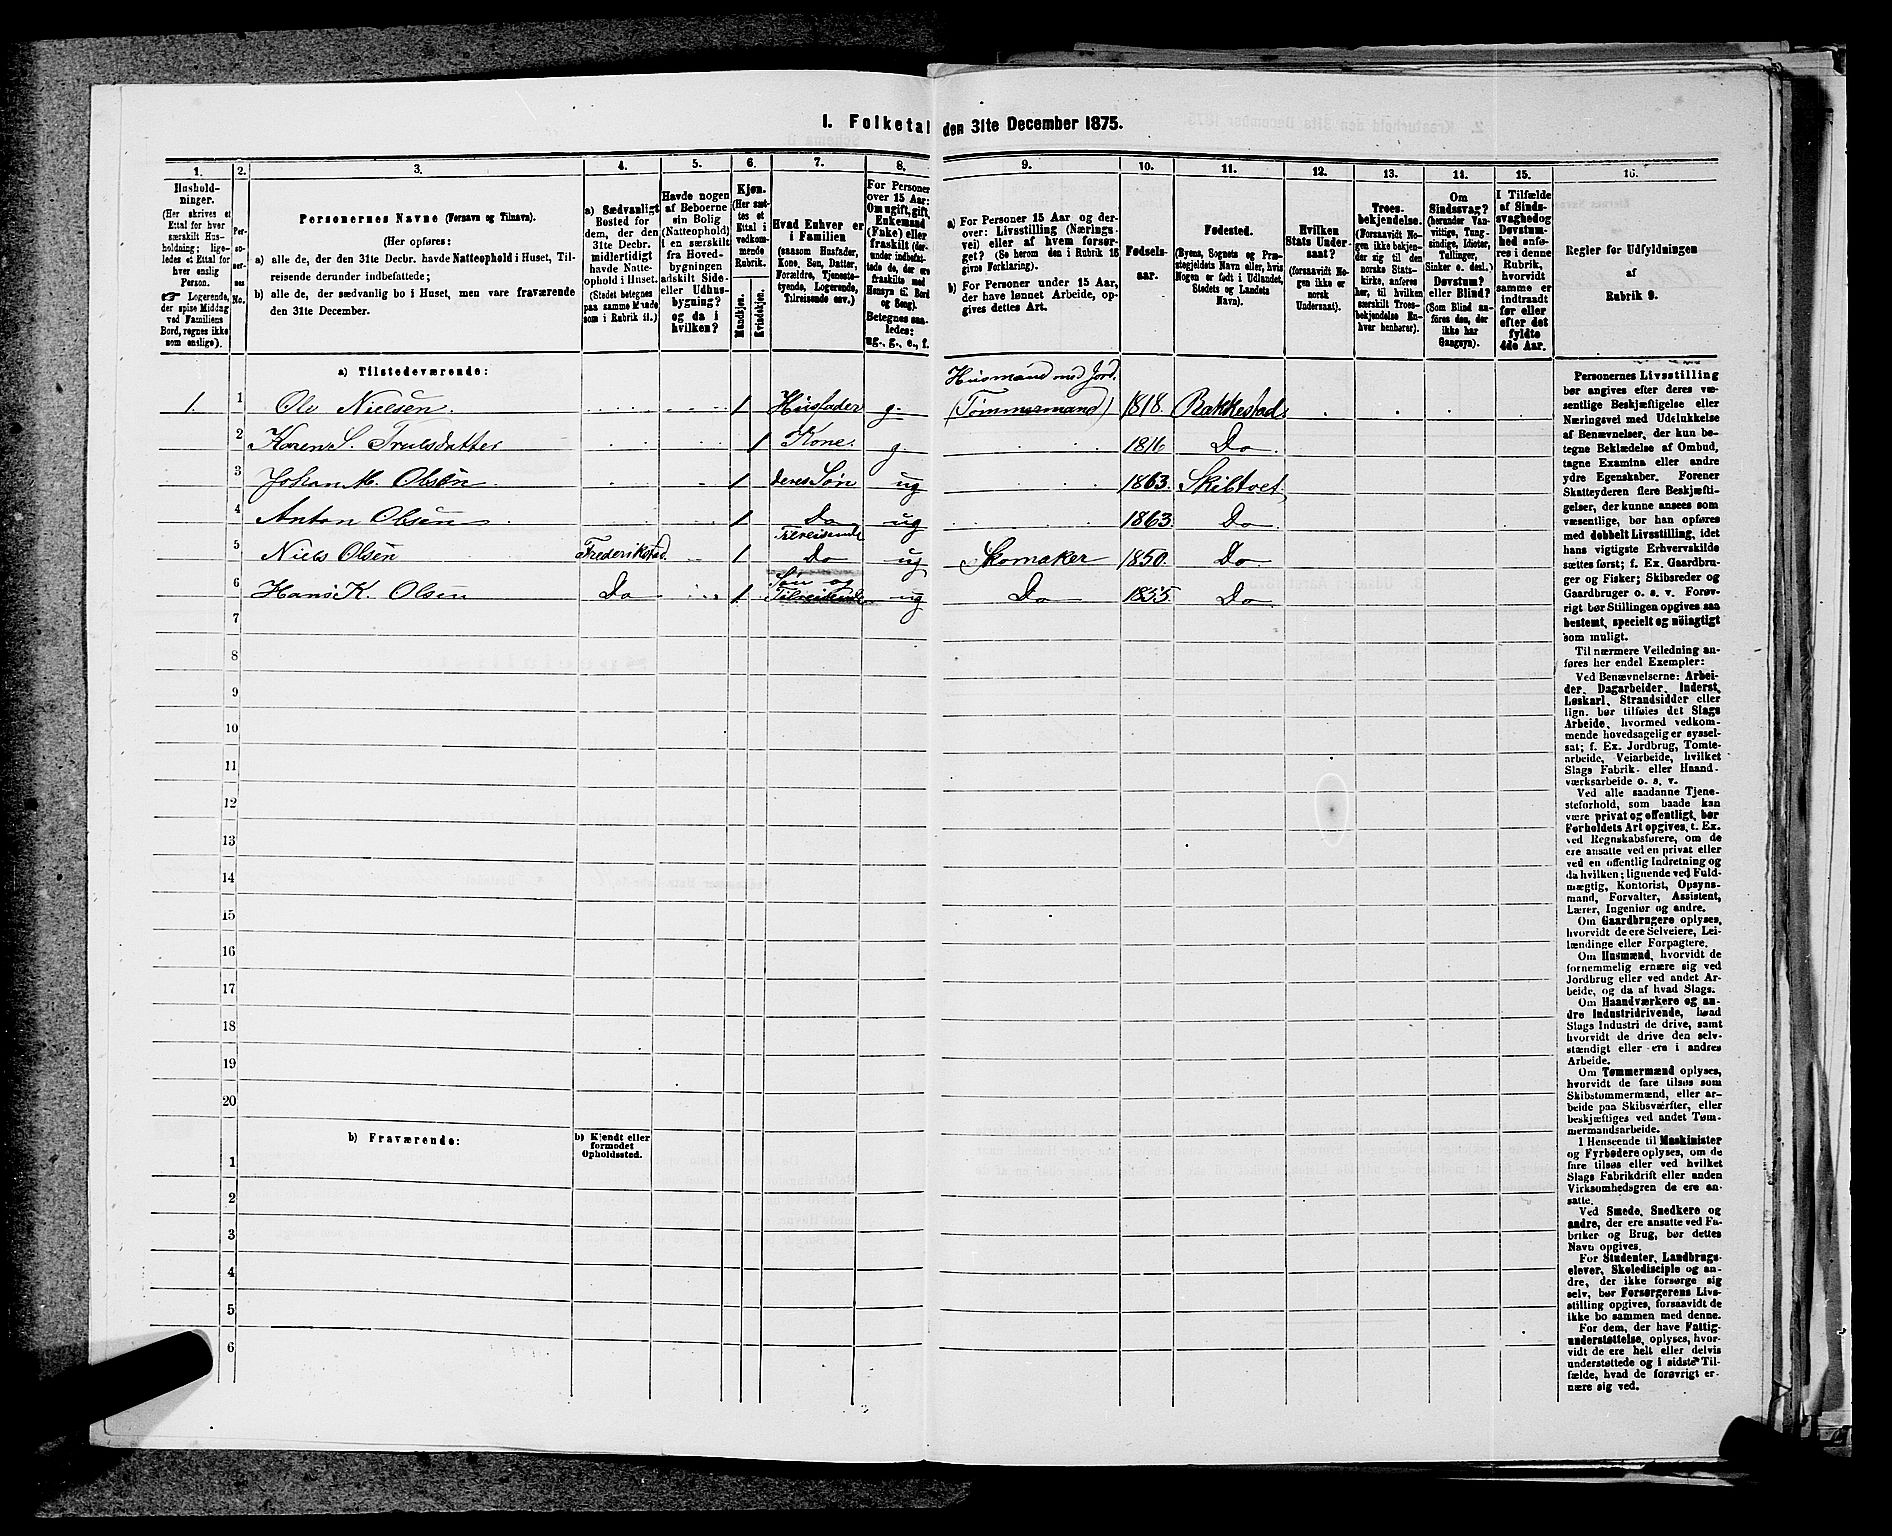 I. Folketal den 31te December 1875.
1. 2. 3. 4. 5. 6. 7. 8. 9. 10. 11. 12. 13. 14. 15. 16.
Husholdninger.
(Her skrives et
Ettal for hver
særskilt Husholdning;
ligeledes et Ettal for
hver enslig
Person.
☛ Logerende,
der spise Middag
ved Familiens
Bord, regnes ikke
som enslige).
Personernes No.
Personernes Navne (Fornavn og Tilnavn).
(Her opføres:
a) alle de, der den 31te Decbr. havde Natteophold i Huset, Tilreisende derunder indbefattede;
b) alle de, der sædvanlig bo i Huset, men vare fraværende
den 31te December.
a) Sædvanligt
Bosted for
dem, der den
31te Decbr.
midlertidigt
havde Natteophold i Huset.
(Stedet betegnes
paa samme Maade
som i Rubrik 11.)
Havde nogen
af Beboerne
sin Bolig
(Natteophold)
i en særskilt
fra Hovedbygningen
adskilt Side-
eller Udhusbygning?
og da i
hvilken?
Kjøn.
(Her sættes et
Ettal i
vedkommende
Rubrik.
Mandkjøn.
Kvindekjøn.
Hvad Enhver er
i Familien
(saasom Husfader,
Kone, Søn, Datter,
Forældre, Tjenestetyende, Logerende,
Tilreisende osv.)
For Personer
over 15 Aar:
Om ugift, gift,
Enkemand
(Enke) eller
fraskilt (derunder indbefattede de, der ere
fraskilte med
Hensyn til Bord
og Seng).
Betegnes saaledes:
ug-, g-, e-, f.
a) For Personer 15 Aar og derover: Livsstilling (Næringsvei) eller af hvem forsørget? (Se herom den i Rubrik 16
givne Forklaring).
b) For Personer under 15 Aar,
der have lønnet Arbeide, opgives dettes Art.
Fødselsaar.
Fødested.
(Byens, Sognets og Præstegjeldets Navn eller, hvis
Nogen er født i Udlandet,
Stedets og Landets
Navn).
Hvilken
Stats Undersaat?
(forsaavidt Nogen ikke er
norsk
Undersaat).
Troesbekjendelse.
(Forsaavidt Nogen ikke bekjender sig til den
norske Statskirke, anføres
her, til hvilken
særskilt Troesbekjendelse Enhver henhører).
Om
Sindssvag?
(herunder Vanvittige, Tungsindige, Idioter,
Tullinger,
Sinker o. desl.)
Døvstum?
eller Blind?
(Som Blind anføres den, der
ikke har
Gangsyn).
I Tilfælde
af Sindssvaghed og
Døvstumhed anføres i denne
Rubrik,
hvorvidt
samme er
indtraadt
før eller
efter det
fyldte
4de Aar.
Regler for Udfyldningen
af
Rubrik 9.
a) Tilstedeværende:
Husmand med Jord
1. 1 Ole Nielsen 1 Husfader g. (Tømmermand) 1818. Rakkestad
2 Karen S. Trulsdatter 1 Kone g. 1816 Do
3 Johan M. Olsen 1 deres Søn ug 1863. Skibtvet
4 Anton Olsen 1 Do ug 1863. Do
5 Niels Olsen Frederikstad 1 Do ug Skomaker 1850. Do
Søn og
6 Hans K. Olsen Do 1 Tilreisende ug Do 1855. Do
7
8
9
10
11
12
13
14
15
16
17
18
19
20
b) Fraværende:
b) Kjendt eller
formodet
Opholdssted.
1
2
3
4
5
6
Personernes Livsstilling
bør angives efter deres væsentlige Beskjæftigelse eller
Næringsvei med Udelukkelse
af Benævnelser, der kun betegne Beklædelse af Ombud,
tagne Examina eller andre
ydre Egenskaber. Forener
Skatteyderen flere Beskjæftigelser, der kunne ansees som
væsentlige, bør han opføres
med dobbelt Livsstilling, idet
hans vigtigste Erhvervskilde
sættes først; f. Ex. Gaardbruger og Fisker; Skibsreder og
Gaardbruger o. s. v. Forøvrigt bør Stillingen opgives saa
bestemt, specielt og nøiagtigt
som muligt.
Til nærmere Veiledning anføres her endel Exempler:
Ved Benævnelserne: Arbeider, Dagarbeider, Inderst,
Løskarl, Strandsidder eller
lign. bør tilføies det Slags
Arbeide, hvormed vedkommende hovedsagelig er sysselsat; f. Ex. Jordbrug, Tomtearbeide, Veiarbeide, hvilket
Slags Fabrik- eller Haandværksarbeide o. s. v.
Ved alle saadanne Tjenesteforhold, som baade kan
være privat og offentligt, bør
Forholdets Art opgives, t. Ex.
ved Regnskabsførere, om de
ere ansatte ved en privat eller
ved en offentlig Indretning og
da hvilken; lignende ved Fuldmægtig, Kontorist, Opsynsmand, Forvalter, Assistent,
Lærer, Ingeniør og andre.
Om Gaardbrugere oplyses,
hvorvidt de ere Selveiere, Leilændinge eller Forpagtere.
Om Husmænd, hvorvidt de
fornemmelig ernære sig ved
Jordbrug eller ved andet Arbeide, og da af hvad Slags.
Om Haandværkere og andre Industridrivende, hvad
Slags Industri de drive, samt
hvorvidt de drive den selvstændigt eller ere i andres
Arbeide.
Om Tømmermænd oplyses,
hvorvidt de fare tilsøs som
Skibstømmermænd, eller arbeide paa Skibsværfter, eller
beskjæftiges ved andet Tømmermandsarbeide.
I Henseende til Maskinister
og Fyrbødere oplyses, om de
fare tilsøs eller ved hvilket
Slags Fabrikdrift eller anden
Virksomhedsgren de ere ansatte.
Ved Smede, Snedkere og
andre, der ere ansatte ved Fabriker og Brug, bør dettes
Navn opgives.
For Studenter, Landbrugselever, Skoledisciple og andre, der ikke forsørge sig
selv, bør Forsørgerens Livsstilling opgives, forsaavidt de
ikke bo sammen med denne.
For dem, der have Fattigunderstøttelse, oplyses, hvorvidt de ere helt eller delvis
understøttede og i sidste Tilfælde, hvad de forøvrigt ernære sig ved.